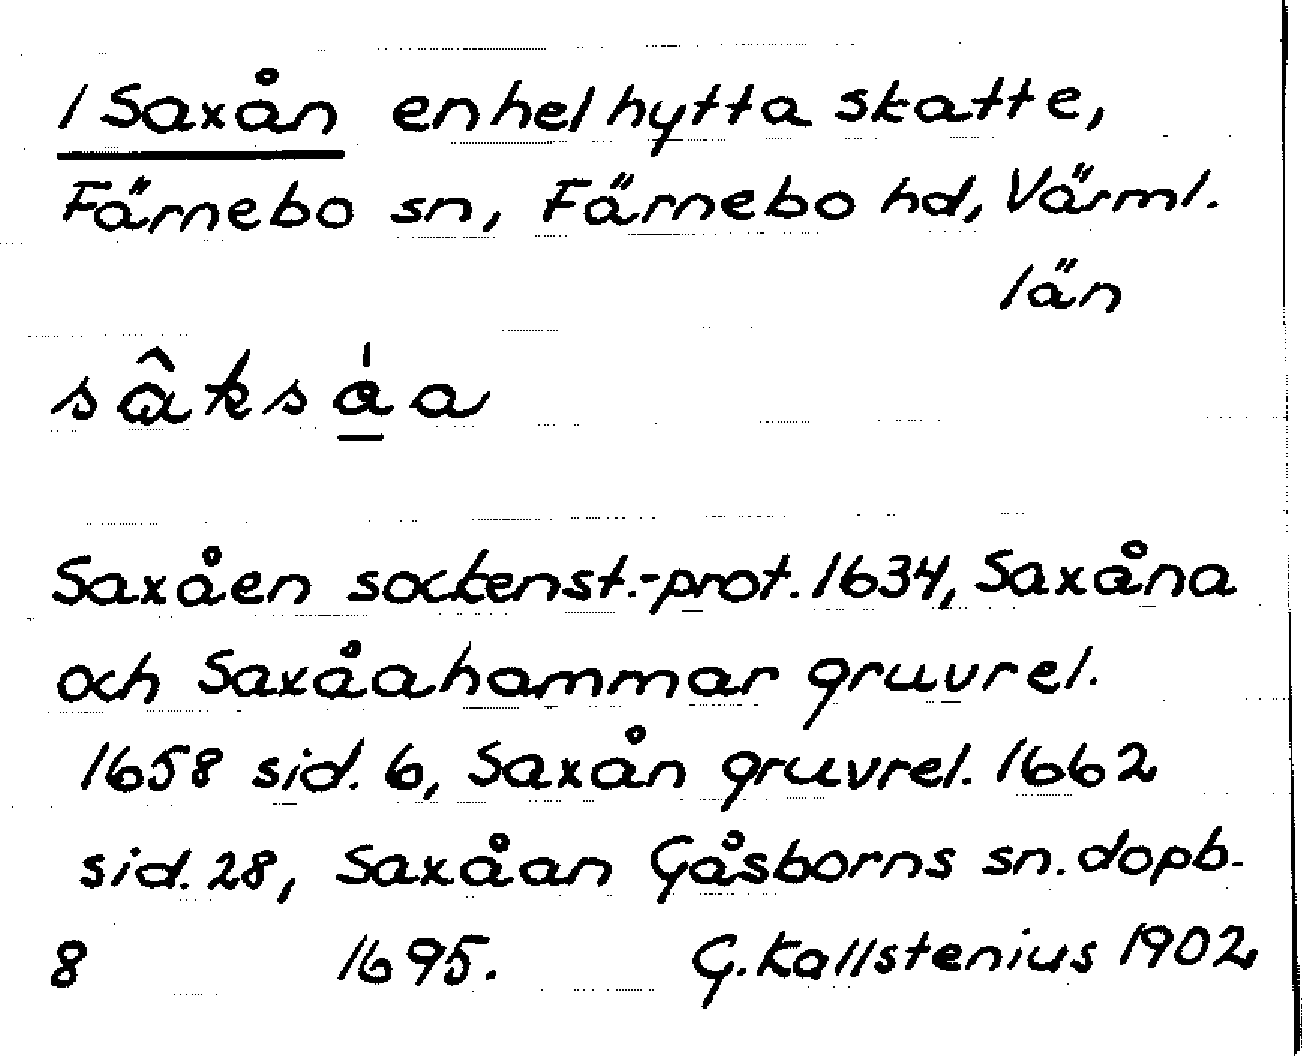 1 Saxån en hel hytta skatte,
Färnebo sn, Färnebo hd, Värml.
län
sâksåa
Saxåen sockenst.-prot. 1634, Saxåna
och Saxåahammar gruvrel.
1658 sid. 6, Saxån gruvrel. 1662
sid. 28, Saxåan Gåsborns sn. dopb.
8 1695. G. Kallstenius 1902